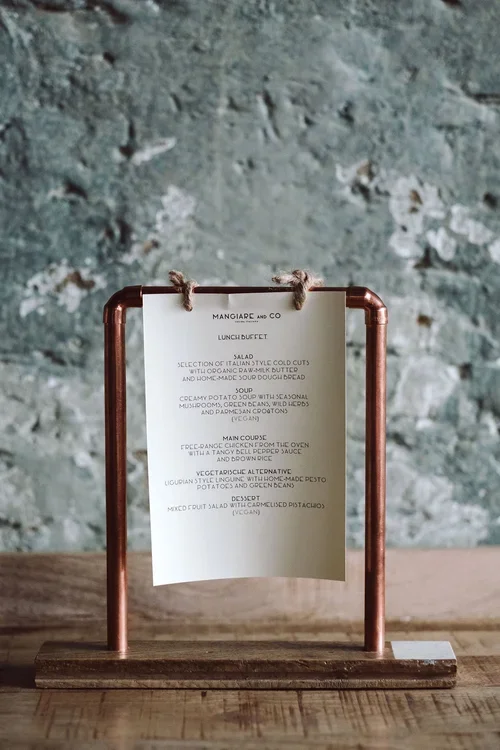 MANGIARE AND CO
LUNCH BUFFET
SALAD
SELECTION OF ITALIAN STYLE COLD CUTS
WITH ORGANIC RAW-MILK BUTTER
AND HOME-MADE SOUR DOUGH BREAD
SOUP
CREAMY POTATO SOUP WITH SEASONAL
MUSHROOMS, GREEN BEANS, WILD HERBS
AND PARMESAN CROQTONS
(VEGAN)
MAIN COURSE
FREE-RANGE CHICKEN FROM THE OVEN
WITH A TANGY BELL PEPPER SAUCE
AND BROWN RICE
VEGETARISCHE ALTERNATIVE
LIGURIAN STYLE LINGUINE WITH HOME-MADE PESTO
POTATOES AND GREEN BEANS
DESSERT
MIXED FRUIT SALAD WITH CARMELISED PISTACHIOS
(VEGAN)